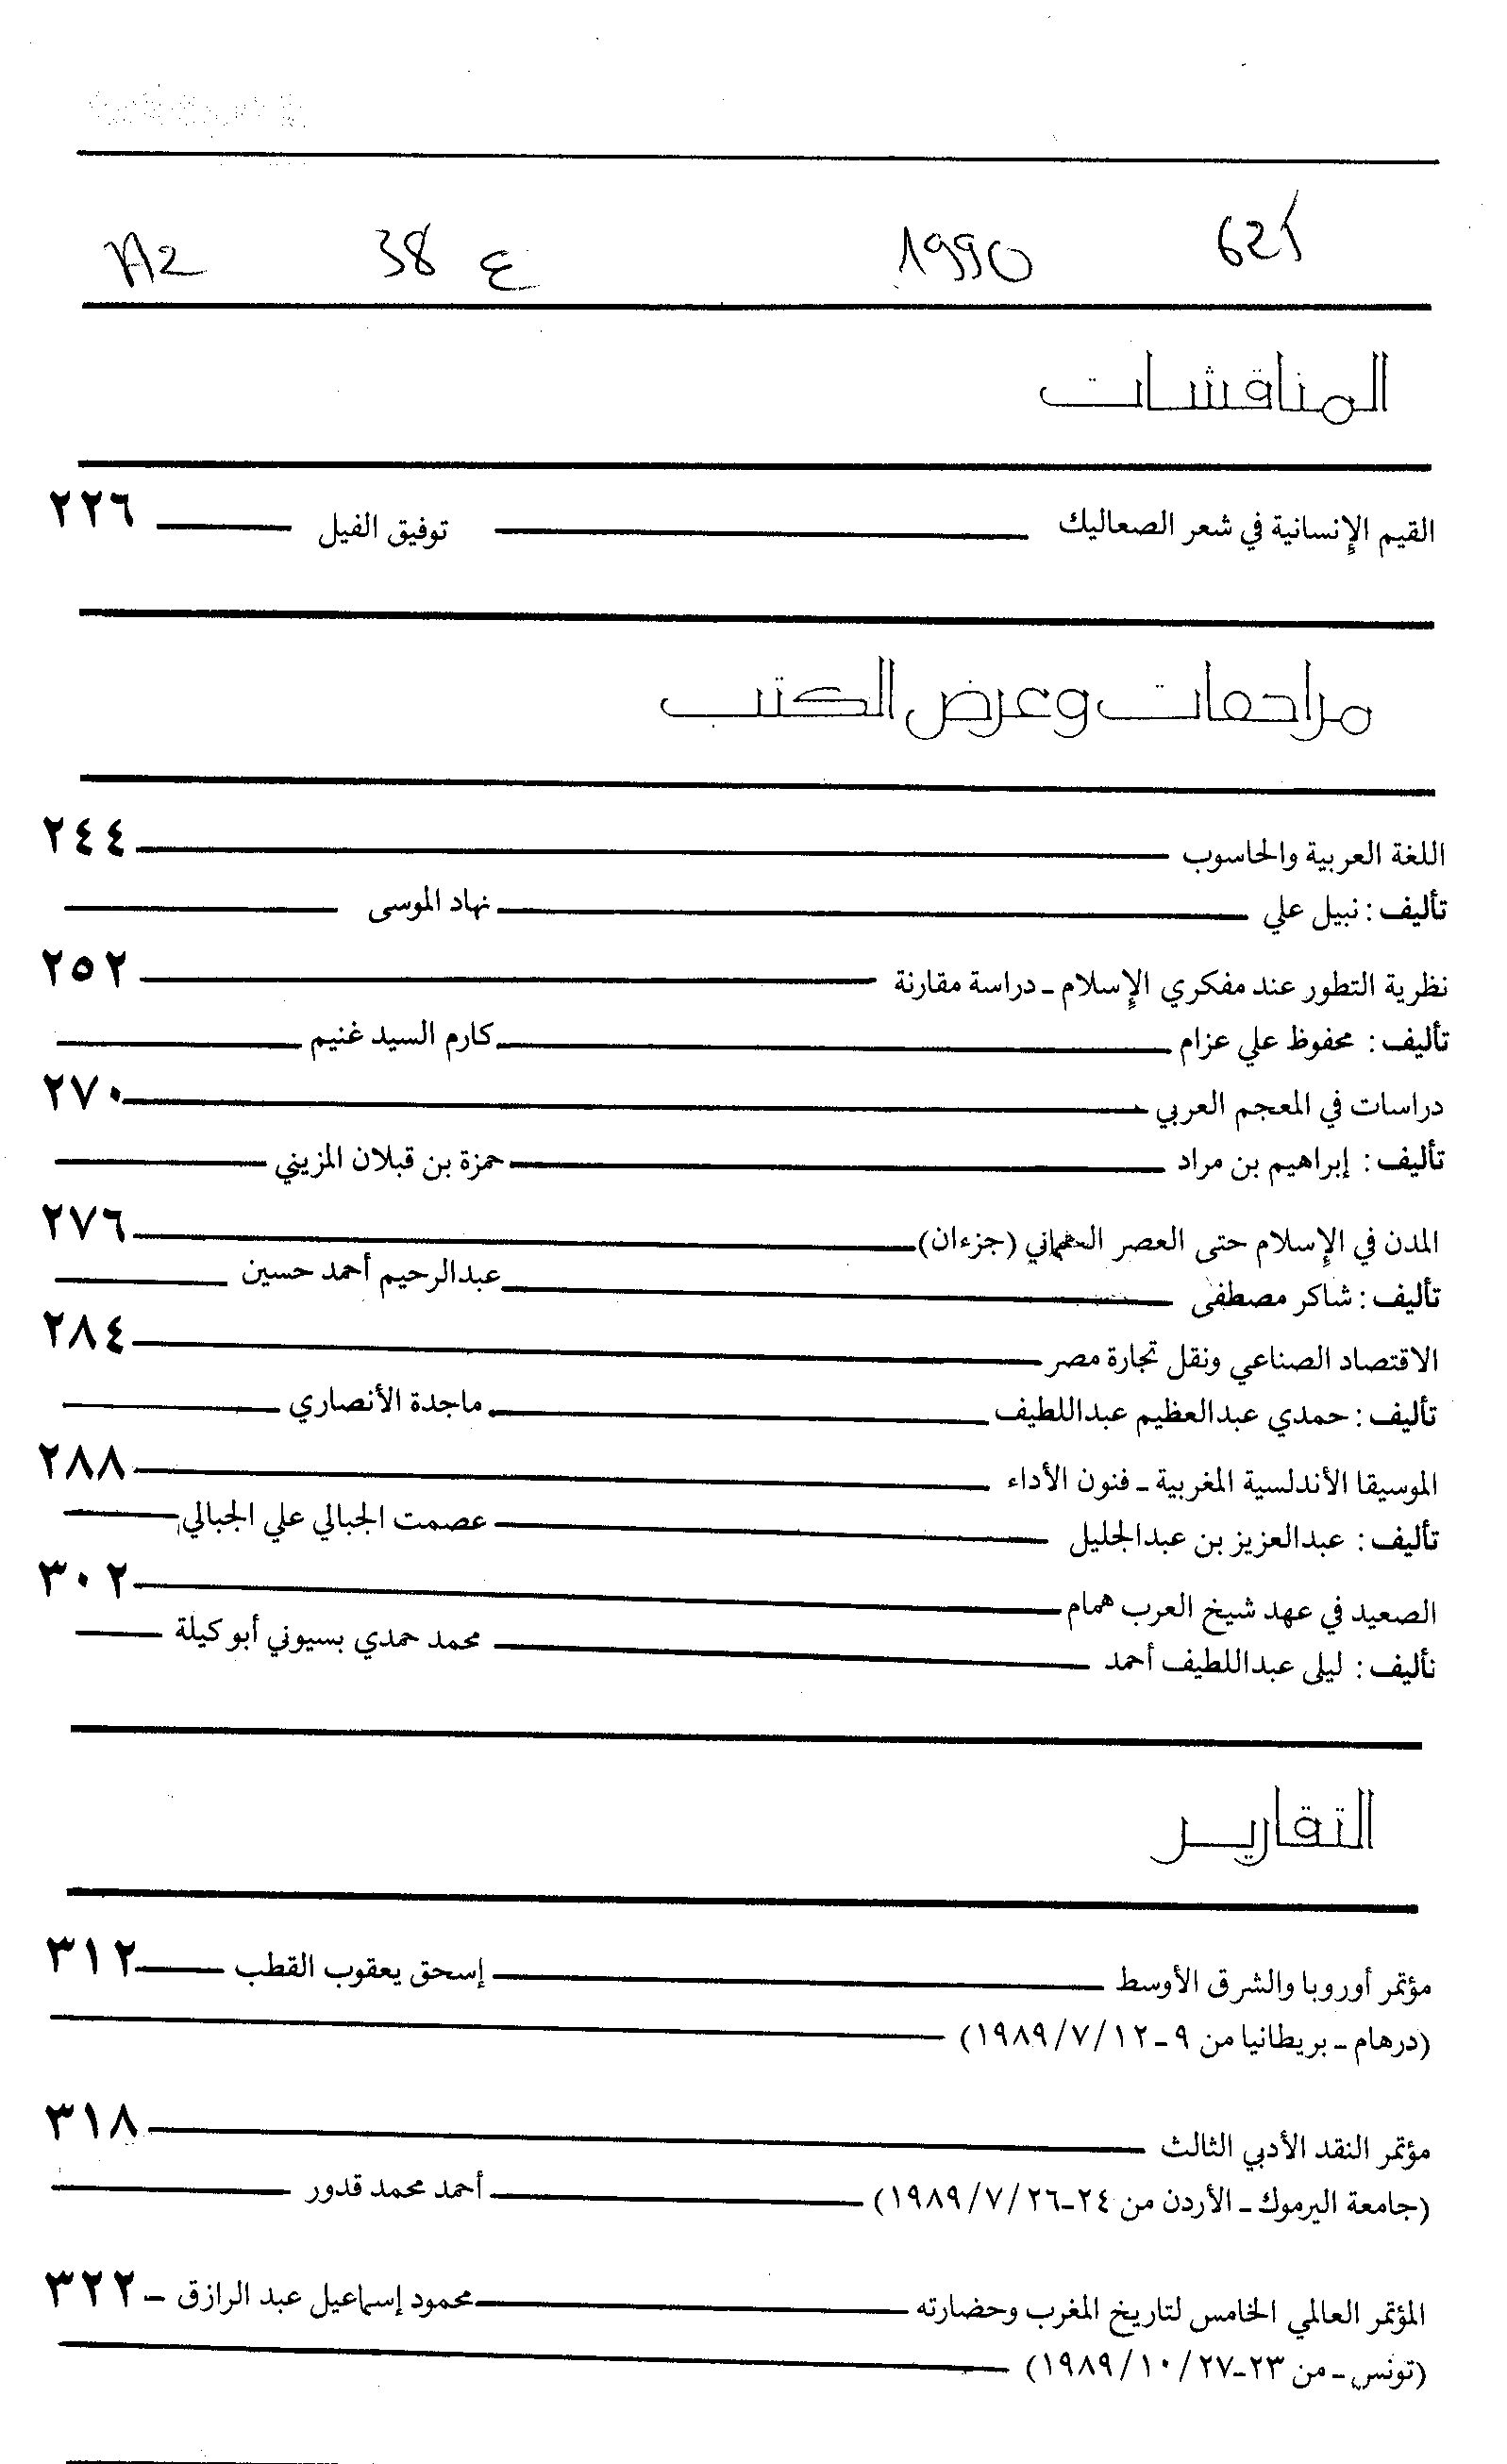 1990 ع 38 A2
المناقشات
القيم الإنسانية في شعر الصعاليك توفيق الفيل ٢٢٦
مراجعات وعرض الكتب
اللغة العربية والحاسوب ٢٤٤
تأليف : نبيل علي نهاد الموسى
نظرية التطور عند مفكري الإسلام ـ دراسة مقارنة ٢٥٢
تأليف : محفوظ علي عزام كارم السيد غنيم
دراسات في المعجم العربي ٢٧٠
تأليف : إبراهيم بن مراد حمزة بن قبلان المزيني
المدن في الإسلام حتى العصر العثماني (جزءان) ٢٧٦
تأليف : شاكر مصطفى عبدالرحيم أحمد حسين
الاقتصاد الصناعي ونقل تجارة مصر ٢٨٤
تأليف : حمدي عبدالعظيم عبداللطيف ماجدة الأنصاري
الموسيقا الأندلسية المغربية ـ فنون الأداء ٢٨٨
تأليف : عبدالعزيز بن عبدالجليل عصمت الجبالي علي الجبالي
الصعيد في عهد شيخ العرب همام ٣٠٢
تأليف : ليلى عبداللطيف أحمد محمد حمدي بسيوني أبو كيلة
التقارير
مؤتمر أوروبا والشرق الأوسط إسحق يعقوب القطب ٣١٢
(درهام ـ بريطانيا من ٩ ـ ١٢/ ٧/ ١٩٨٩)
مؤتمر النقد الأدبي الثالث ٣١٨
(جامعة اليرموك ـ الأردن من ٢٤ـ٢٦/ ٧/ ١٩٨٩) أحمد محمد قدور
المؤتمر العالمي الخامس لتاريخ المغرب وحضارته محمود إسماعيل عبد الرازق ٣٢٢
(تونس ـ من ٢٣ـ٢٧/ ١٠/ ١٩٨٩)